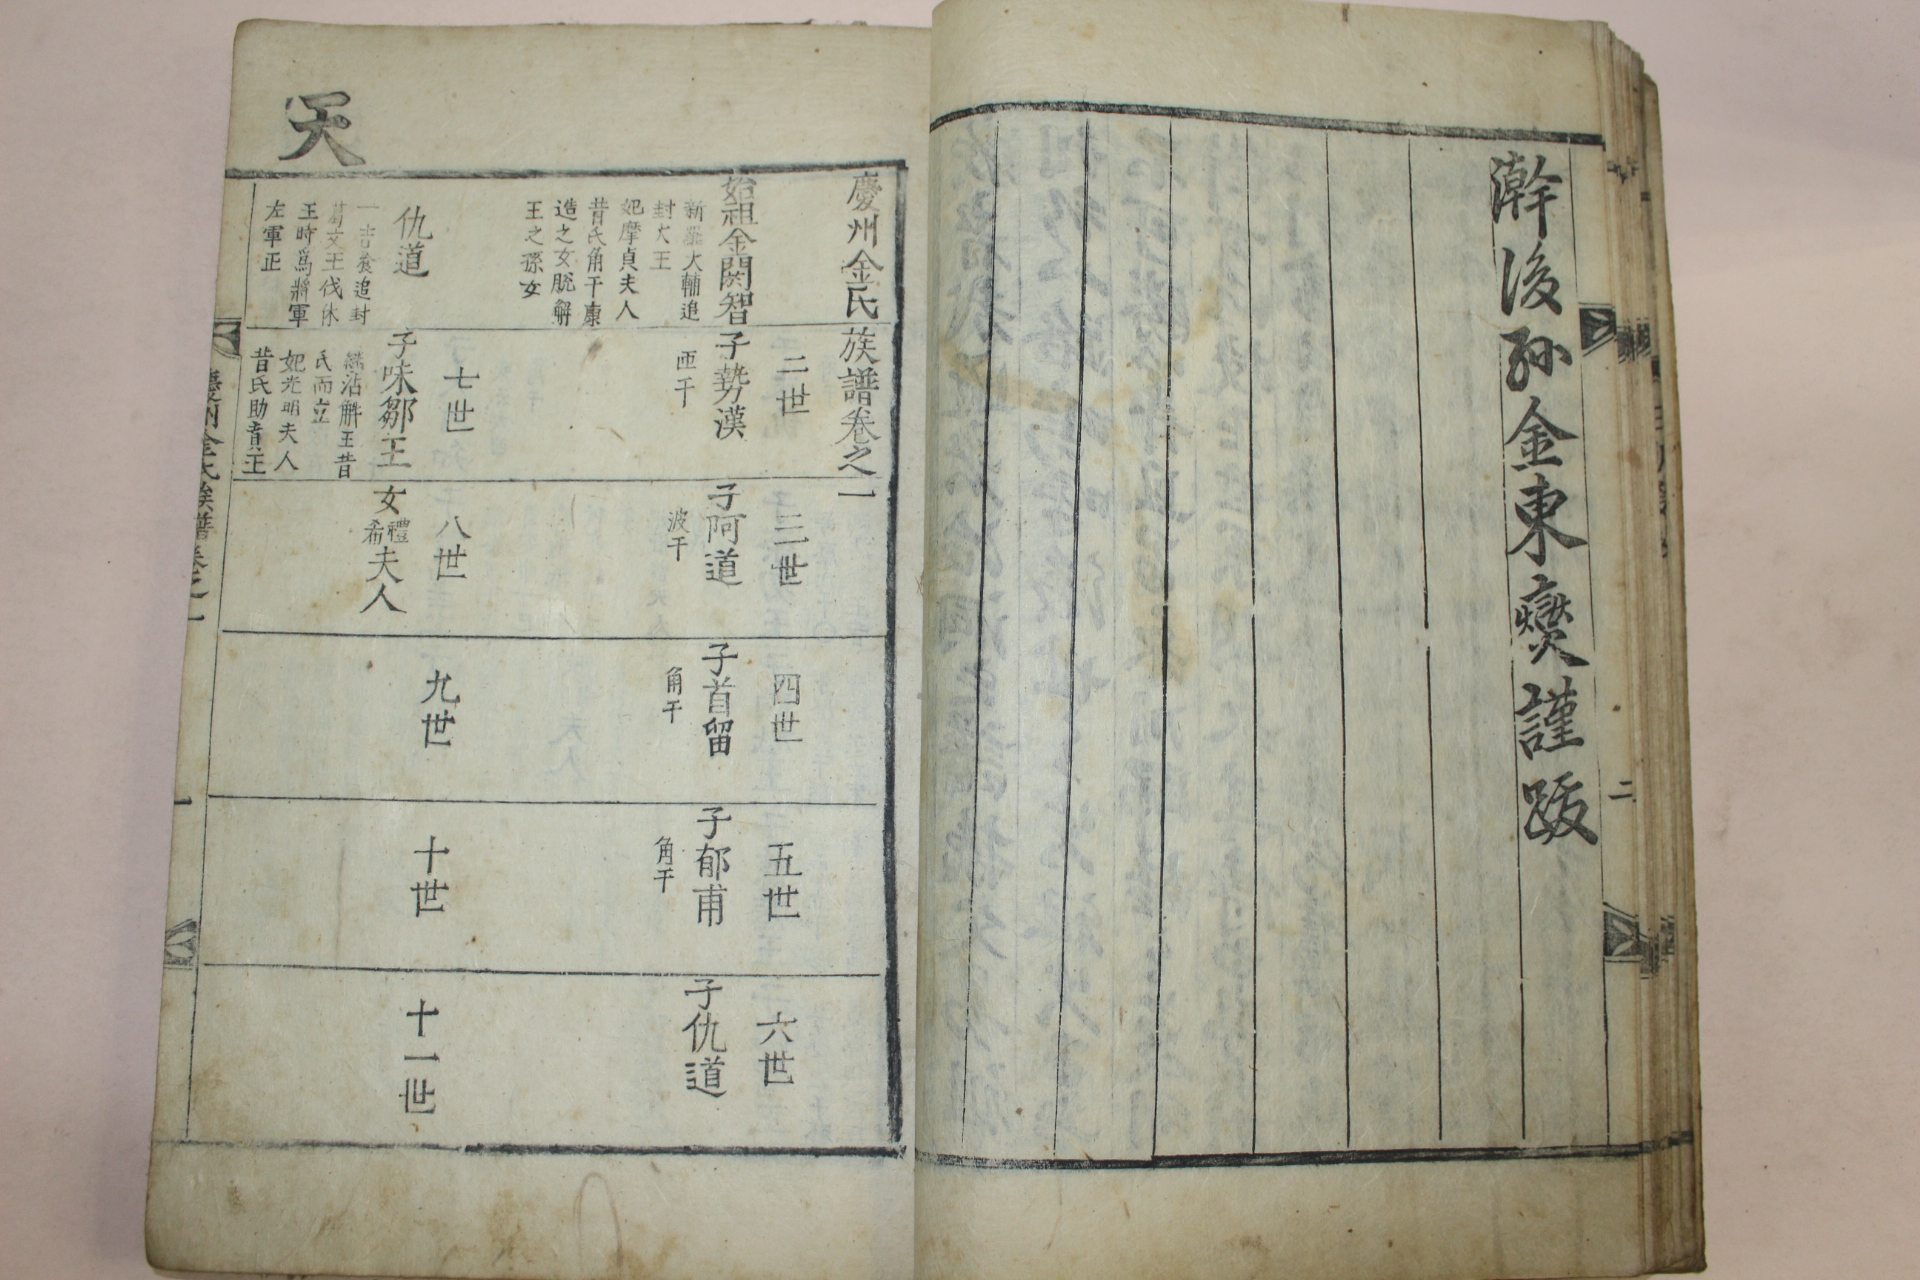 澣後孫金東燮謹跋
二
天
慶州金氏族譜卷之一
始祖金閼智
新羅大輔追
封大王
妃摩貞夫人
昔氏角干康
造之女脫解
王之孫女
二世
子勢漢
匝干
三世
子阿道
波干
四世
子首留
角干
五世
子郁甫
角干
六世
子仇道
仇道
一吉飡追封
葛文王伐休
王時爲將軍
左軍正
七世
子味鄒王
繼沾解王昔
氏而立
妃光明夫人
昔氏助賁王
八世
女禮希夫人
九世
十世
十一世
慶州金氏族譜卷之一
一